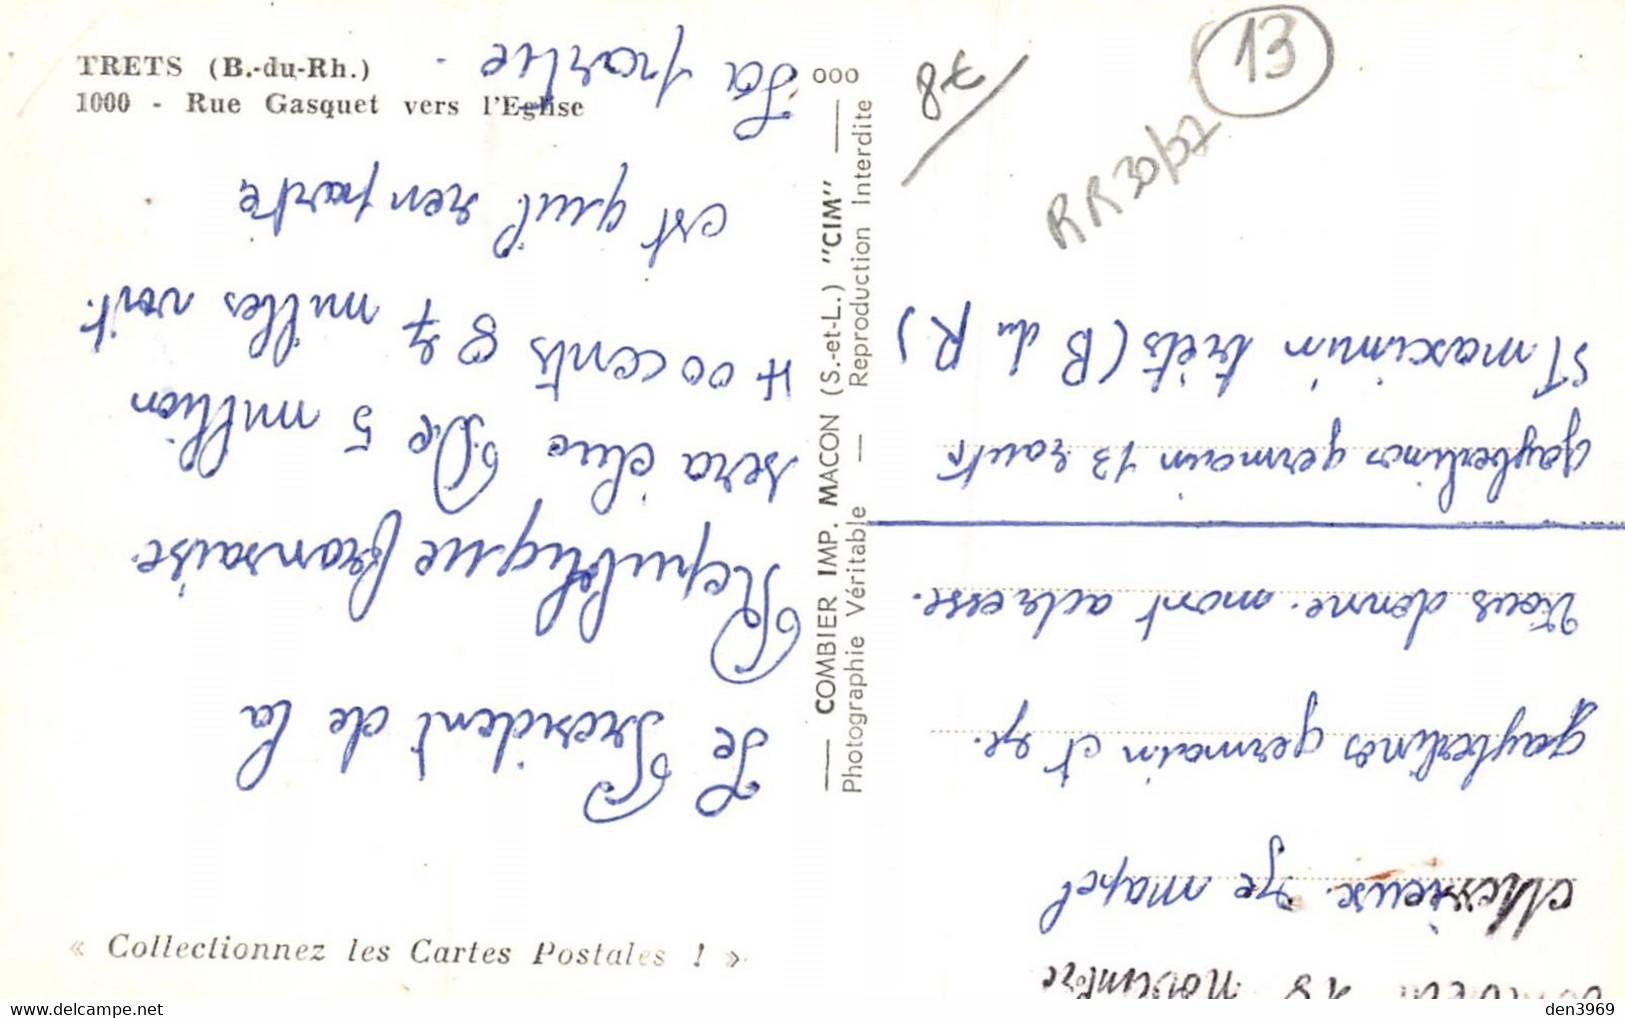 TRETS (B.-du-Rh.)
1000 - Rue Gasquet vers l'Eglise
« Collectionnez les Cartes Postales ! »
COMBIER IMP. MACON (S.-et-L.) "CIM"
Photographie Véritable — Reproduction Interdite
8€
13
RR30/07
18 novembre
Messieux. Je mapel
gayberlinos germain et Je.
Vous donne. mont adresse.
gayberlinos germain 13 route
ST maximin trèts (B du R)
Le President de la
Republique fransaise.
sera élue De 5 million
4 00 cents 87 milles voit.
est quil sen parte
La parlie.
den3969